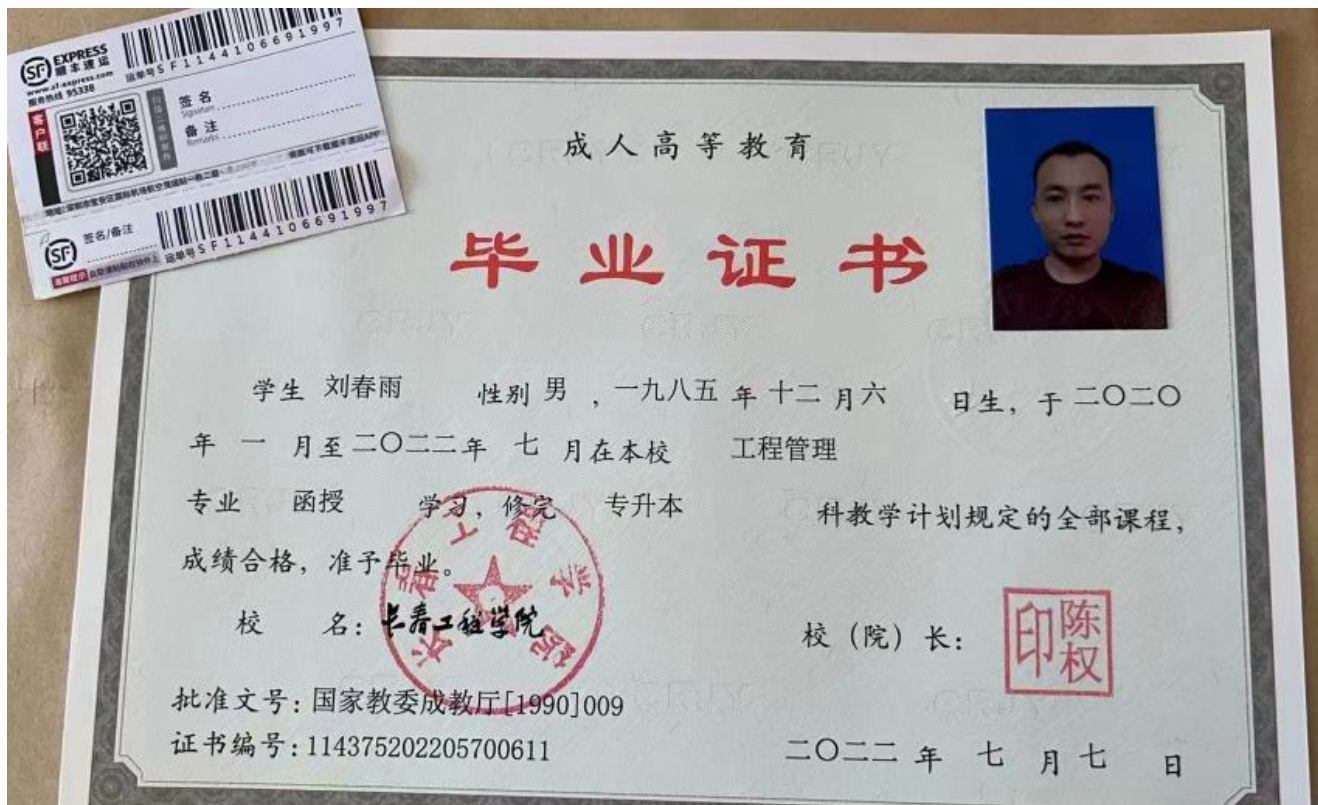 EXPRESS
顺丰速运
www.sf-express.com
服务热线 95338
运单号 SF1144106691997
客户联
签名
Signature
备注
Remarks
签名/备注
运单号 SF1144106691997
成人高等教育
毕业证书
学生 刘春雨 性别 男 , 一九八五 年 十二 月 六 日生, 于 二〇二〇
年 一 月至 二〇二二 年 七 月在本校 工程管理
专业 函授 学习, 修完 专升本 科教学计划规定的全部课程,
成绩合格, 准予毕业。
校 名: 长春工程学院
校 (院) 长:
陈权印
长春工程学院
批准文号: 国家教委成教厅[1990]009
证书编号: 114375202205700611
二〇二二 年 七 月 七 日